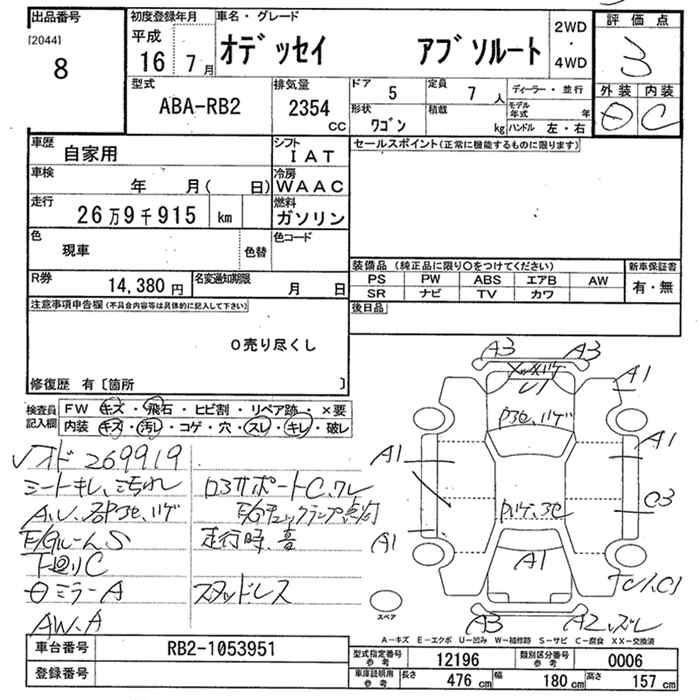 出品番号
[2044]
8
初度登録年月
平成
16 7月
車名・グレード
オデッセイ アブソルート
2WD
・
4WD
評価点
3
外装 内装
C
型式
ABA-RB2
排気量
2354
CC
ドア 5
定員 7人
形状 ワゴン
積載 kg
ディーラー・並行
モデル年式 年
ハンドル 左・右
車歴 自家用
シフト IAT
車検 年 月( 日)
冷房 WAAC
走行 26万9千915 km
燃料 ガソリン
色 現車
色替
色コード
R券 14,380円
名変通知期限 月 日
セールスポイント(正常に機能するものに限ります)
装備品(純正品に限り○をつけてください)
PS PW ABS エアB AW
SR ナビ TV カワ
新車保証書
有・無
後日品
注意事項申告欄(不具合内容等は具体的に記入して下さい)
○売り尽くし
修復歴 有〔箇所 〕
検査員記入欄
FW キズ・飛石・ヒビ割・リペア跡・×要
内装 キズ・汚レ・コゲ・穴・スレ・キレ・破レ
メオド 269919
シートキレ、汚れ
A.U.部色、ハゲ
E/GルームS
下廻りC
ミラーA
AW.A
ロアサポートC、ワレ
E/Gチェックランプ点灯
走行時、音
スタッドレス
A3 A3
U1
A1
A1 A1
C3
A1
A1
A3
A2
スペア
A-キズ E-エクボ U-凹み W-補修跡 S-サビ C-腐食 XX-交換済
車台番号 RB2-1053951
登録番号
型式指定番号 参考 12196
類別区分番号 参考 0006
車庫証明用 参考 長さ 476cm 幅 180cm 高さ 157cm